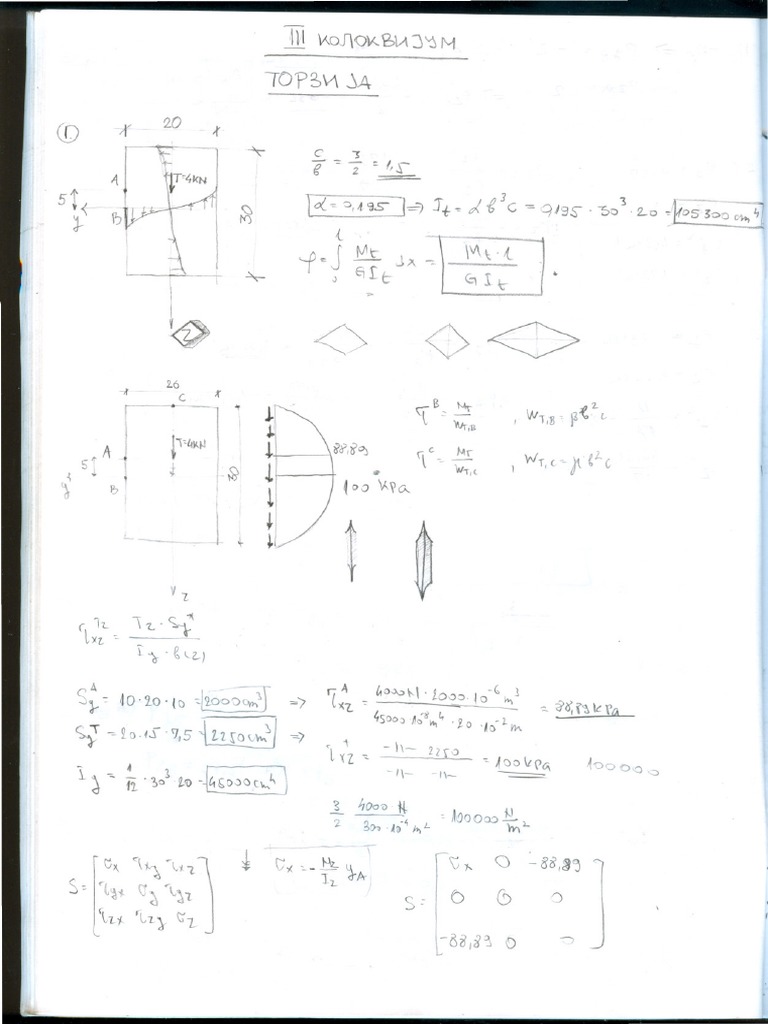 III КОЛОКВИЈУМ
ТОРЗИЈА
1.
20
A
T=4KN
5
B
y
30
c/b = 3/2 = 1,5
α = 0,195 => It = α b³ c = 0,195 · 30³ · 20 = 105300 cm⁴
φ = ∫ Mt/GIt dx = Mt · l / GIt
C
A
T=4KN
5
B
30
z
88,89
100 kPa
τᴮ = MT/WT,B , WT,B = β b² c
τᶜ = MT/WT,C , WT,C = μ b² c
τxz^Tz = Tz · Sy* / Iy · b(z)
Sy^A = 10 · 20 · 10 = 2000 cm³ => τxz^A = 4000N · 2000 · 10⁻⁶ m³ / 45000 · 10⁻⁸ m⁴ · 20 · 10⁻² m = 88,89 kPa
Sy^T = 20 · 15 · 7,5 = 2250 cm³ => τxz^T = -11- 2250 / -11- -11- = 100 kPa 100000
Iy = 1/12 · 30³ · 20 = 45000 cm⁴
3/2 4000 N / 300 · 10⁻⁴ m² = 100000 N/m²
S = [σx τxy τxz
τyx σy τyz
τzx τzy σz]
σx = - Mz/Iz yA
S = [σx 0 -88,89
0 0 0
-88,89 0 0]